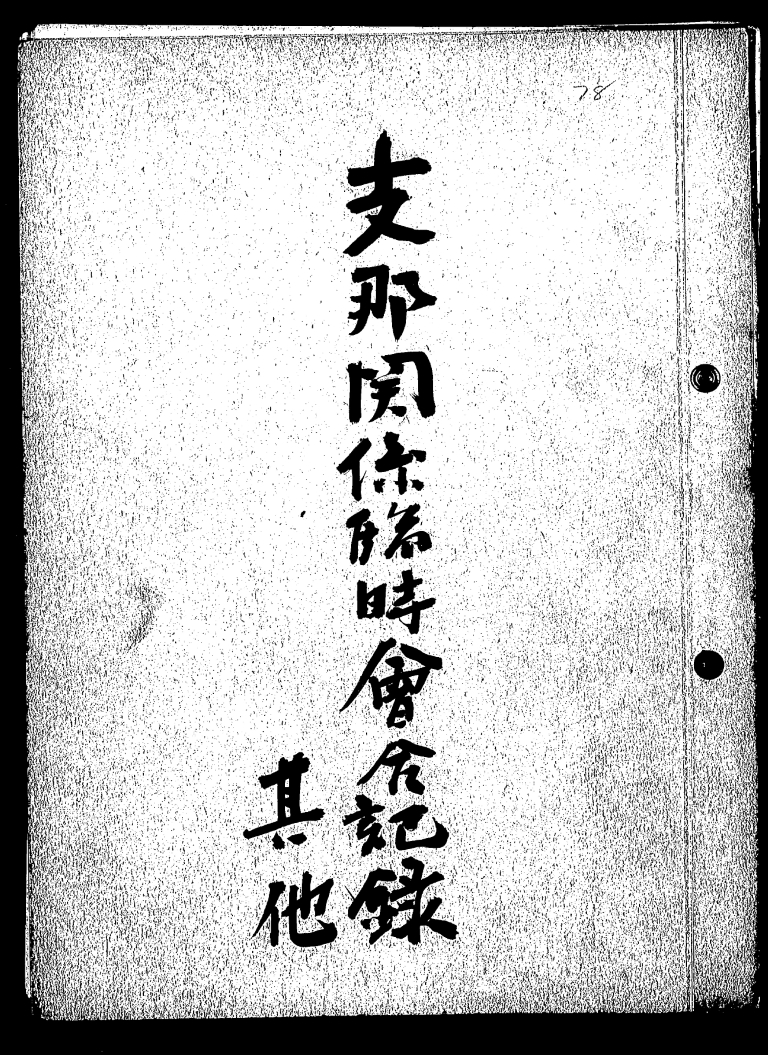 78
支那関係臨時會合記録
其他